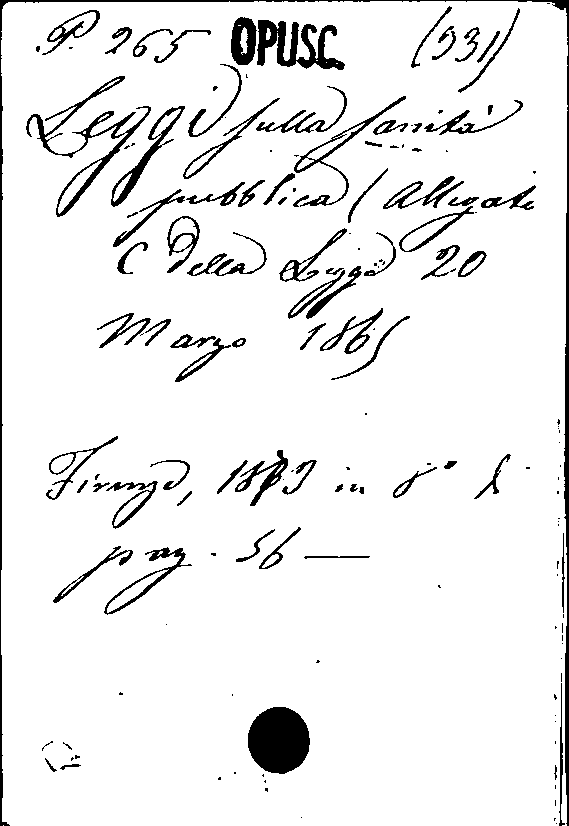 P. 265 OPUSC. (331)
Leggi sulla sanità
pubblica (Allegato
C della Legge 20
Marzo 1865
Firenze, 1873 in 8° di
pag. 56 —